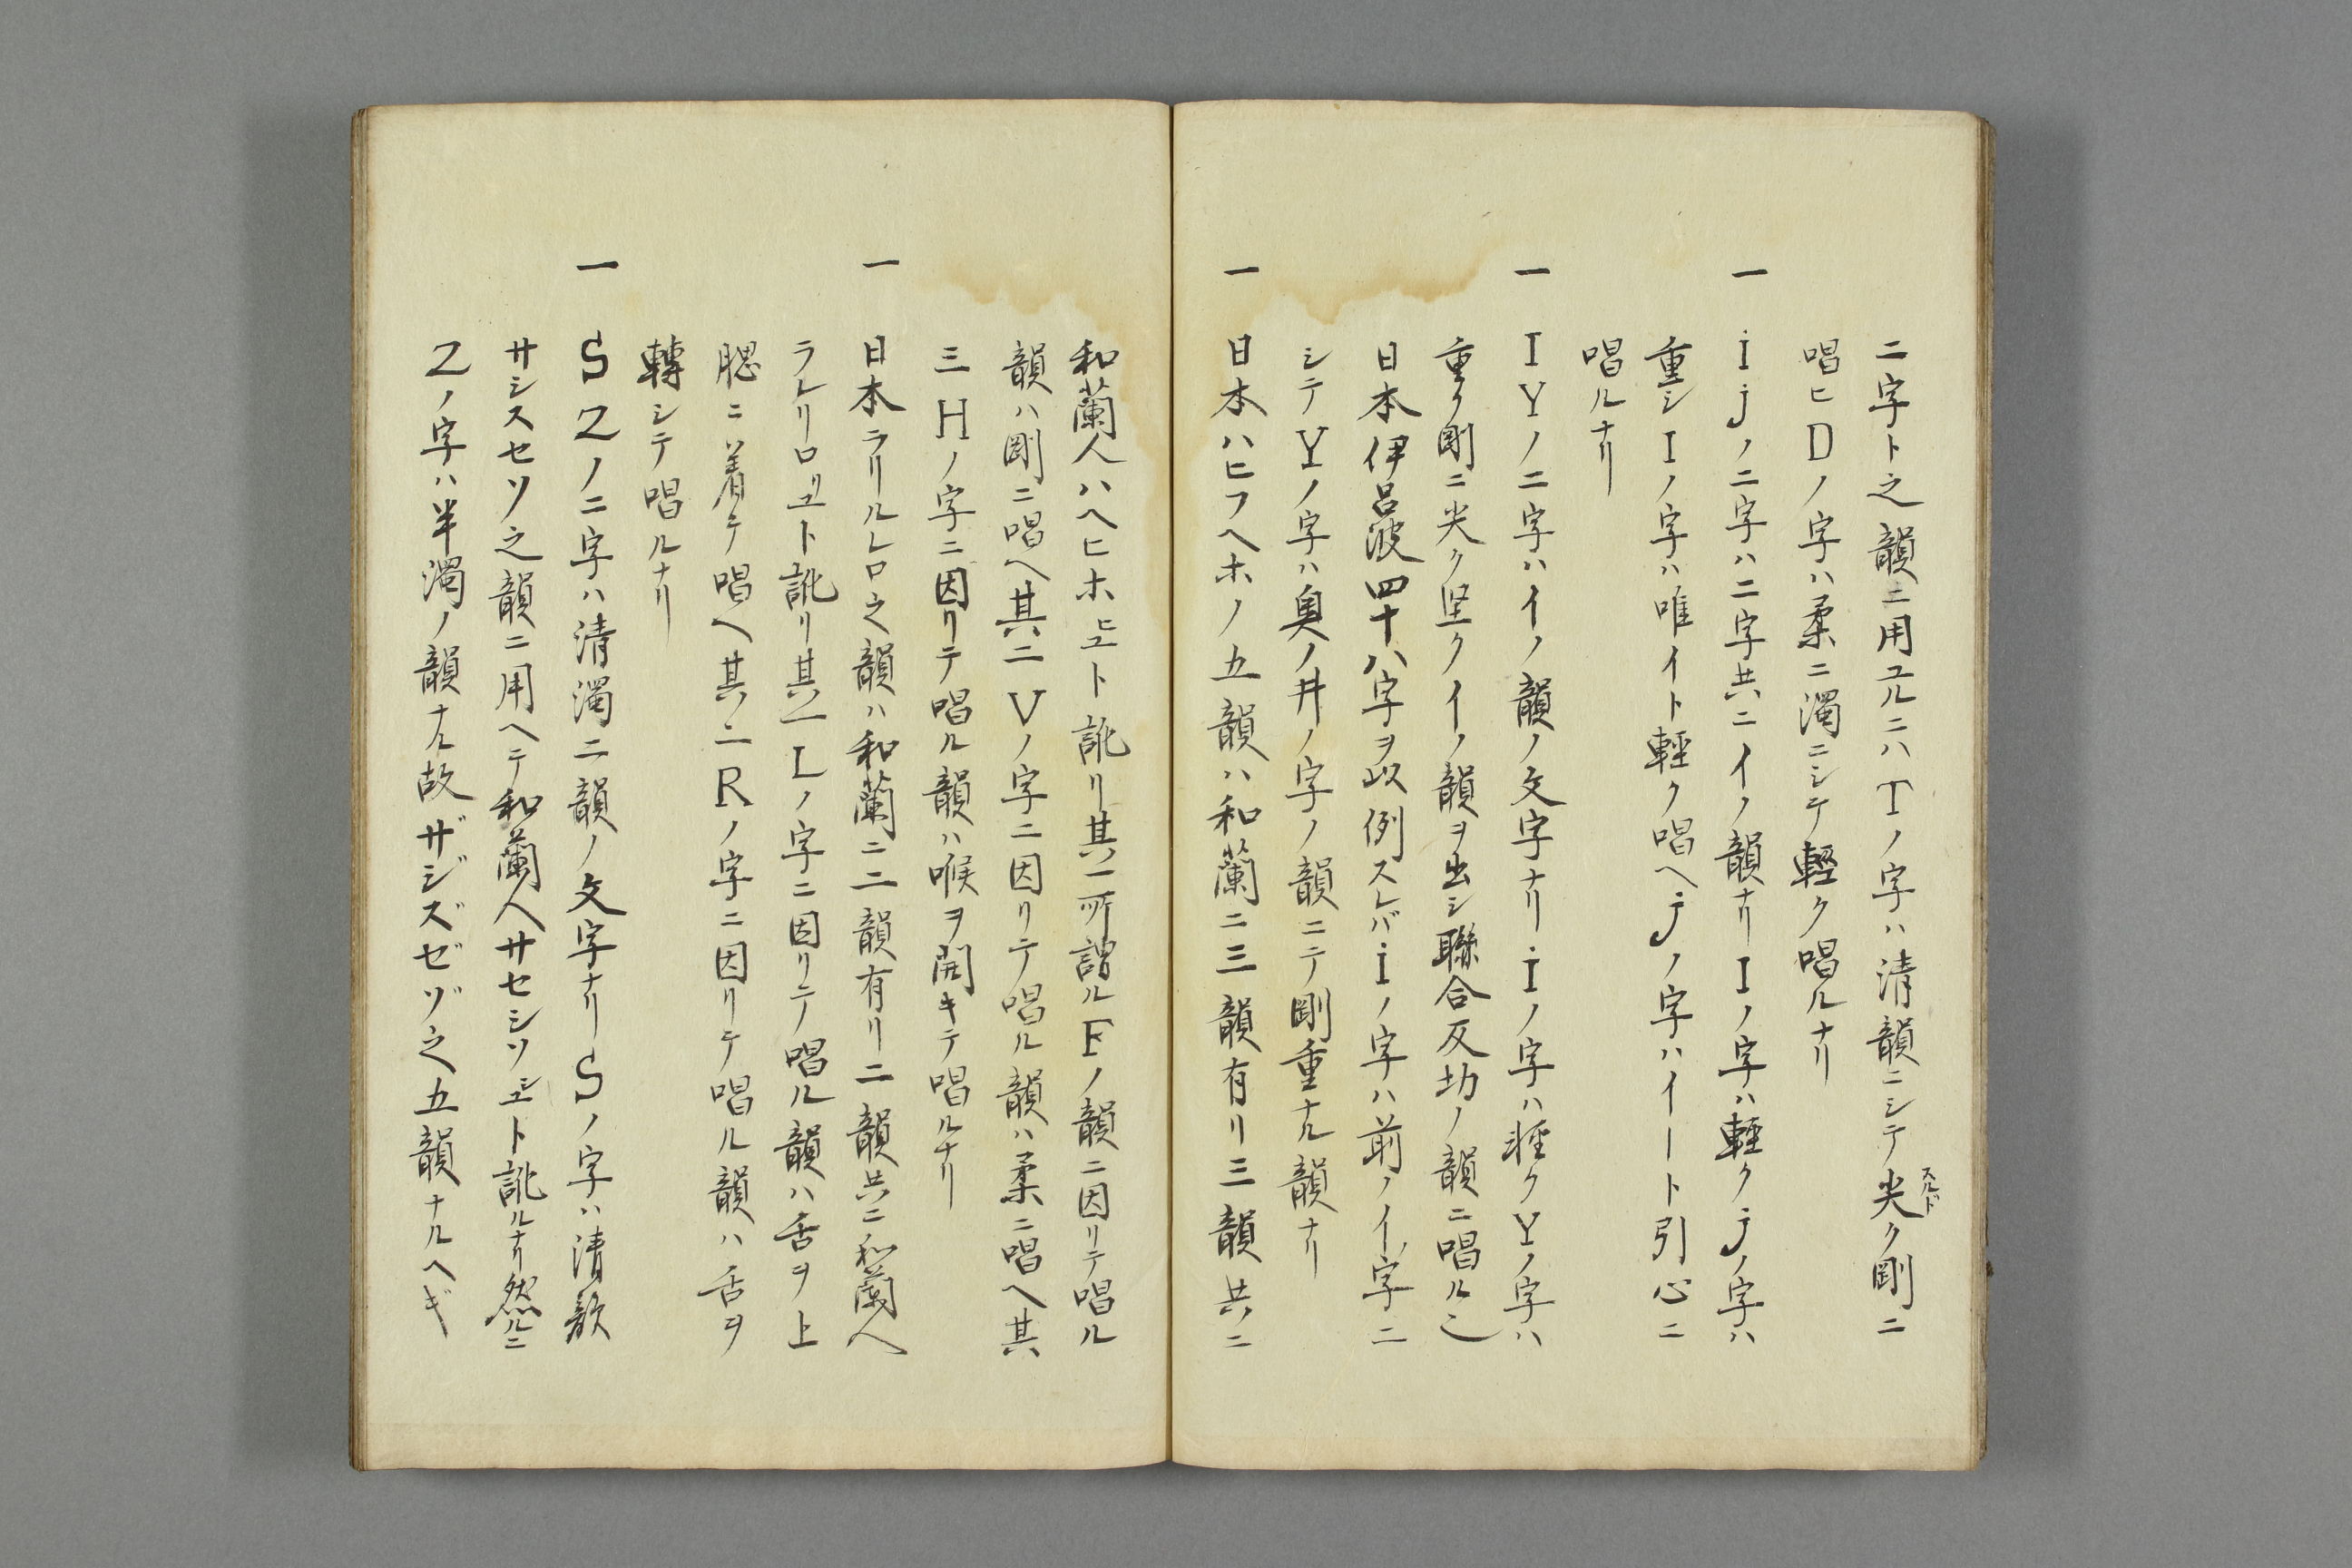 二字ト之韻ニ用ユルニハTノ字ハ清韻ニシテ尖クスルド剛ニ
唱ヒDノ字ハ柔ニ濁ニシテ軽ク唱ルナリ
一 ijノ二字ハ二字共ニイノ韻ナリIノ字ハ軽クjノ字ハ
重シIノ字ハ唯イト軽ク唱ヘjノ字ハイート引心ニ
唱ルナリ
一 IYノ二字ハイノ韻ノ文字ナリiノ字ハ軽クYノ字ハ
重ク剛ニ尖ク堅クイノ韻ヲ出シ聯合反切ノ韻ニ唱ル
日本伊呂波四十八字ヲ以例スレバiノ字ハ前ノイノ字ニ
シテYノ字ハ奥ノ井ノ字ノ韻ニテ剛重ナル韻ナリ
一 日本ハヒフヘホノ五韻ハ和蘭ニ三韻有リ三韻共ニ
和蘭人ハヘヒホヒユト訛リ其一所謂ルFノ韻ニ因リテ唱ル
韻ハ剛ニ唱ヘ其二Vノ字ニ因リテ唱ル韻ハ柔ニ唱ヘ其
三Hノ字ニ因リテ唱ル韻ハ喉ヲ開キテ唱ルナリ
一 日本ラリルレロ之韻ハ和蘭ニ二韻有リ二韻共ニ和蘭人
ラレリロリユト訛リ其一Lノ字ニ因リテ唱ル韻ハ舌ヲ上
腮ニ着テ唱ヘ其二Rノ字ニ因リテ唱ル韻ハ舌ヲ
轉シテ唱ルナリ
一 SZノ二字ハ清濁二韻ノ文字ナリSノ字ハ清
サシスセソ之韻ニ用ヘテ和蘭人サセシソシユト訛ルナリ然ルニ
Zノ字ハ半濁ノ韻ナル故ザジズゼゾ之五韻ナルヘギ